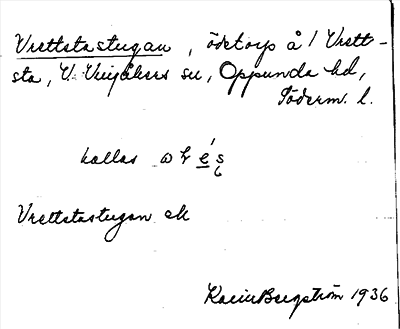 Vrettstastugan, ödetorp å / Vrett-
sta, V. Vingåkers sn, Oppunda hd,
Söderm. l.
kallas
Vrettstastugan ek
Karin Bergström 1936